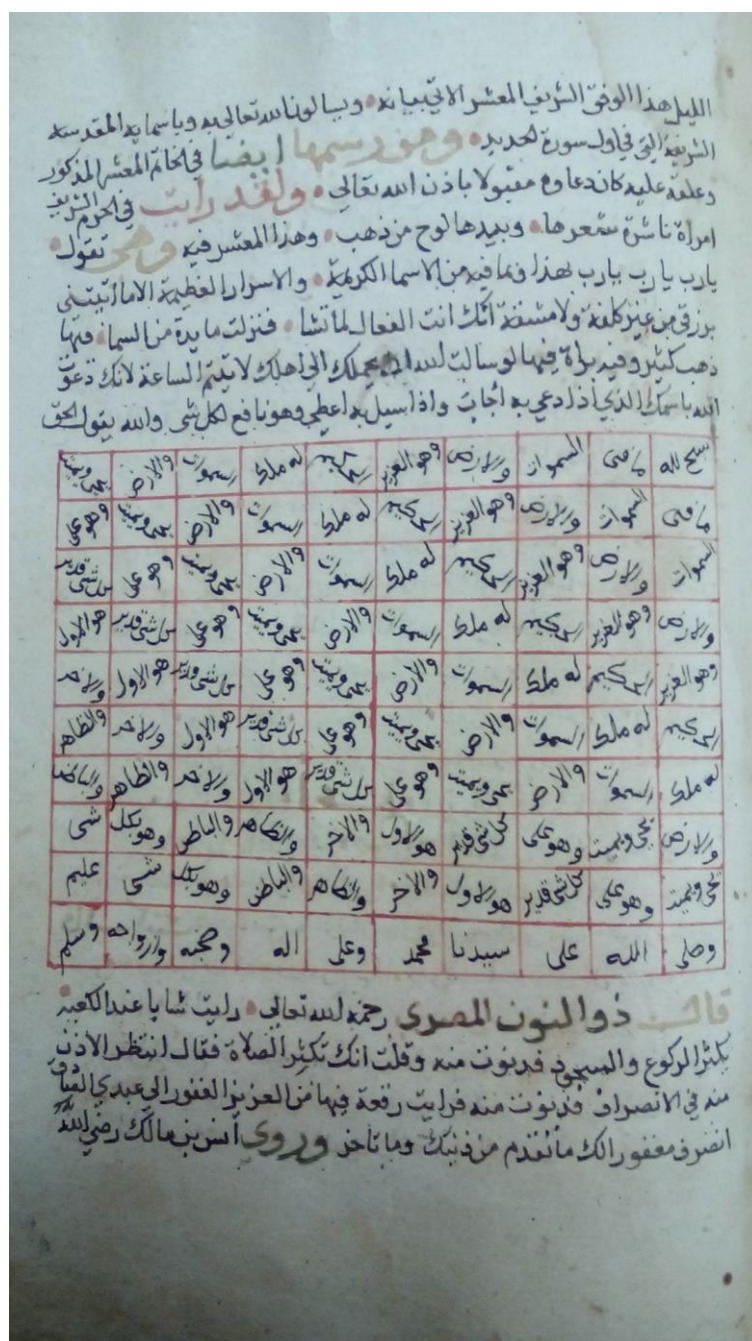 الليل هذا الوفق الشريف المعشر الاتي بيانه ويسالون الله تعالى به وباسمايه المقدسه
الشريفة التي في اول سورة الحديد ومن رسمها ايضا في الخاتم المعشر المذكور
وعلقه عليه كان دعاوه مقبولا باذن الله تعالى ولقد رايت في الحرم الشريف
امراة ناشرة شعرها وبيدها لوح من ذهب وهذا المعشر فيه وهي تقول
يارب يارب يارب بهذا وبما فيه من الاسما الكريمة والاسرار العظيمة الا ما اتيتني
برزقي من غير كلفة ولا مشقة انك انت الفعال لما تشا فنزلت مايدة من السما فيها
ذهب كثير وفيه براة فيها لو سالت الله ان يحملك الى اهلك لا يقيم الساعة لانك دعوت
الله باسمك الذي اذا دعي به اجاب واذا سيل به اعطى وهو نافع لكل شي والله يقول الحق
سبح لله ما في السموات والارض وهو العزيز الحكيم له ملك السموات والارض يحي ويميت
ما في السموات والارض وهو العزيز الحكيم له ملك السموات والارض يحي ويميت وهو على
السموات والارض وهو العزيز الحكيم له ملك السموات والارض يحي ويميت وهو على كل شي قدير
والارض وهو العزيز الحكيم له ملك السموات والارض يحي ويميت وهو على كل شي قدير هو الاول
وهو العزيز الحكيم له ملك السموات والارض يحي ويميت وهو على كل شي قدير هو الاول والاخر
الحكيم له ملك السموات والارض يحي ويميت وهو على كل شي قدير هو الاول والاخر والظاهر
له ملك السموات والارض يحي ويميت وهو على كل شي قدير هو الاول والاخر والظاهر والباطن
والارض يحي ويميت وهو على كل شي قدير هو الاول والاخر والظاهر والباطن وهو بكل شي
يحي ويميت وهو على كل شي قدير هو الاول والاخر والظاهر والباطن وهو بكل شي عليم
وصلى الله على سيدنا محمد وعلى اله وصحبه وازواجه وسلم
قال ذو النون المصري رحمه الله تعالى رايت شابا عند الكعبة
يكثر الركوع والسجود فدنوت منه وقلت انك تكثر الصلاة فقال انتظر الاذن
منه في الانصراف فدنوت منه فرايت رقعة فيها من العزيز الغفور الى عبدي
انصرف مغفورا لك ما تقدم من ذنبك وما تاخر وروي انس بن مالك رضي الله